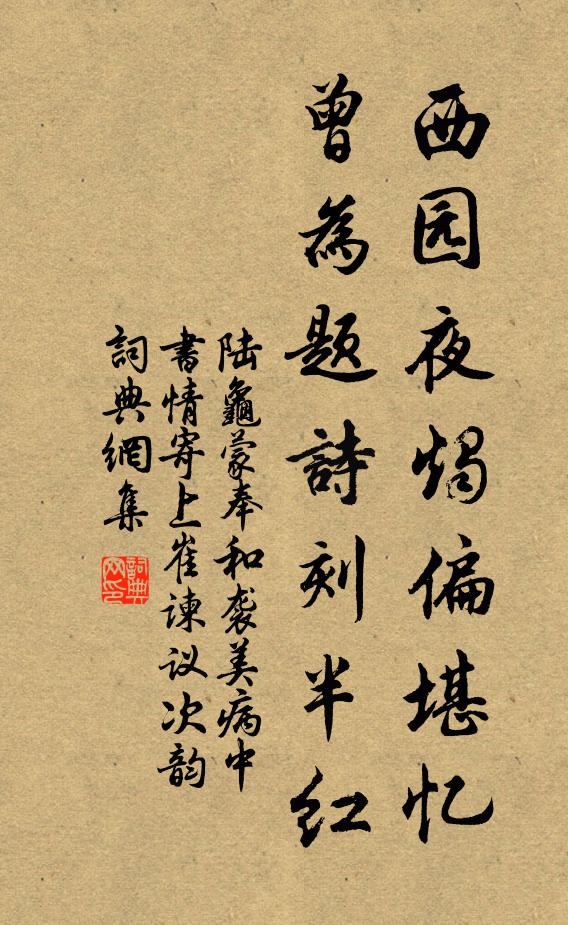 西园夜烛偏堪忆
曾為题詩刻半红
陆龜蒙奉和袭美病中
書情寄上崔谏议次韵
詞典網集
詞典网印